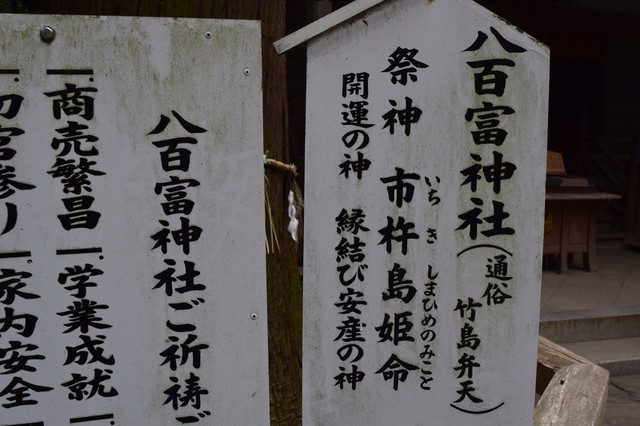 八百富神社(通俗 竹島弁天)
祭神 市杵島姫命
いちきしまひめのみこと
開運の神 縁結び安産の神
八百富神社ご祈祷ご
一、商売繁昌 一、学業成就
初宮参り 一、家内安全